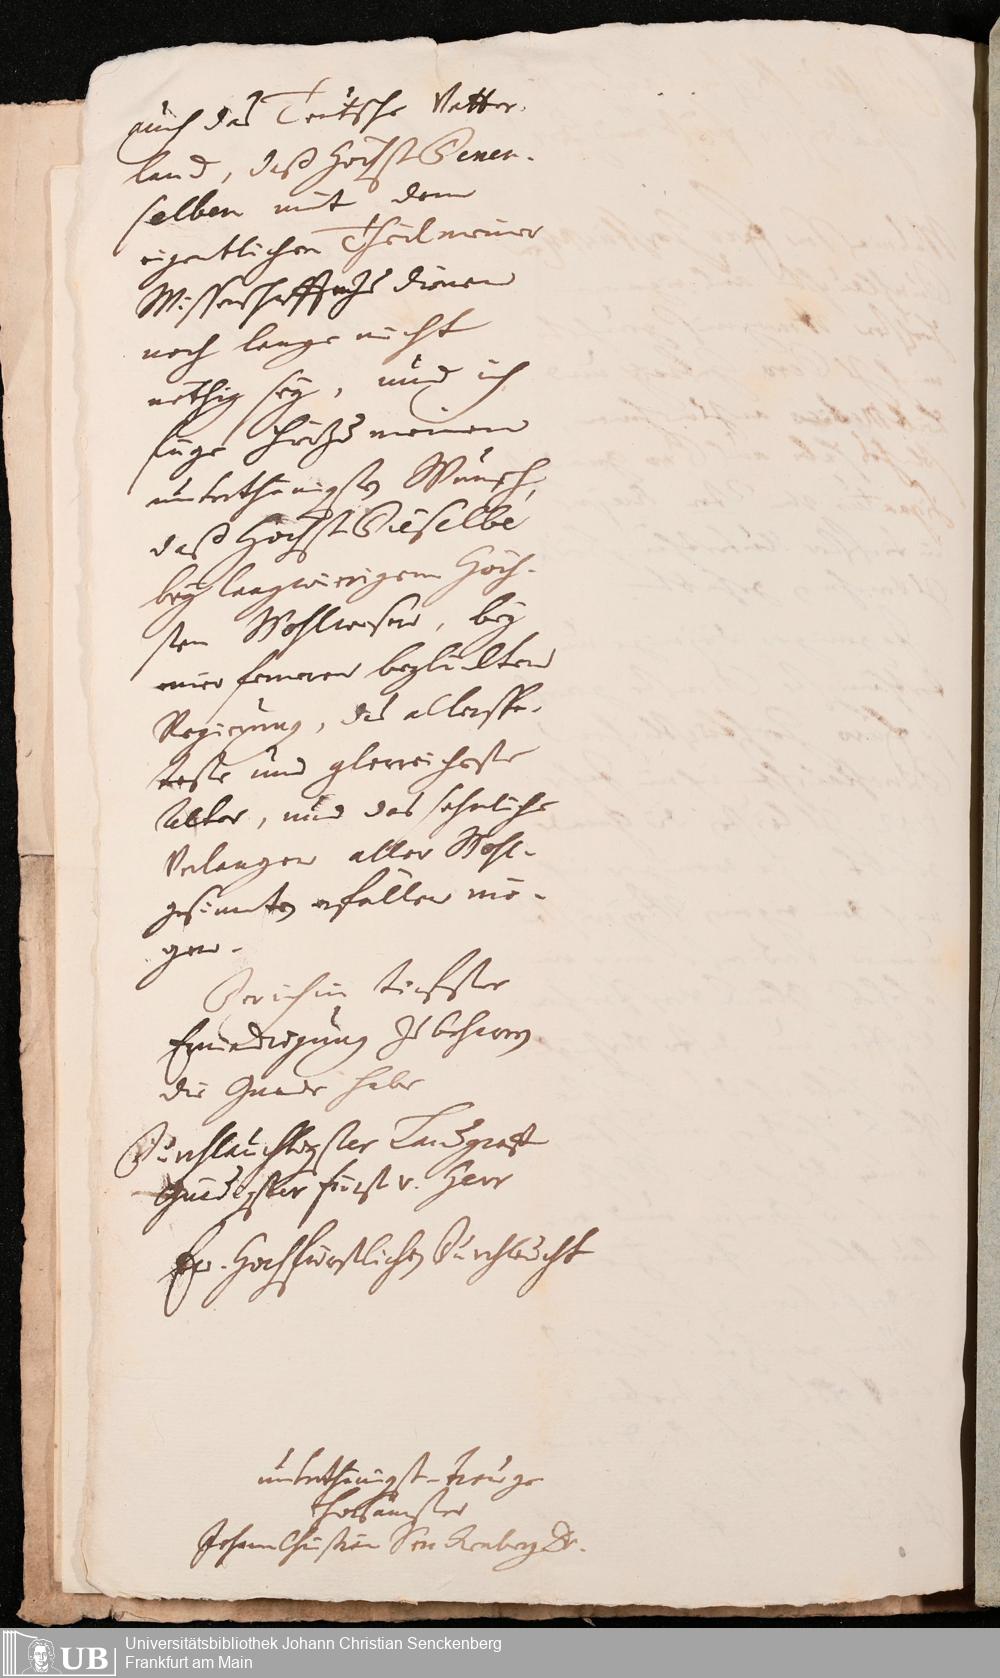 auch das Teutsche Vatter-
land, daß Höchst Denen-
selben mit dem
eigentlichen Theil meiner
Wissenschafft zu dienen
noch lange nicht
nöthig sey, und ich
füge hierzu meinen
unterthänigsten Wunsch,
daß Höchst Dieselbe
bey langwierigem Höch-
sten Wohlwesen, bey
einer ferneren beglückten
Regierung, das allerspä-
teste und glorreichste
Alter, und das sehnliche
Verlangen aller Wohl-
gesinnten erfüllen mö-
gen.
Der ich in tiefster
Erniedrigung zu beharren
die Gnade habe
Durchlauchtigster Landgraf
Gnädigster Fürst u. Herr
Ew. Hochfürstlichen Durchlaucht
unterthänigst-treuge
horsamster
Johann Christian Senckenberg Dr.
UB
Universitätsbibliothek Johann Christian Senckenberg
Frankfurt am Main